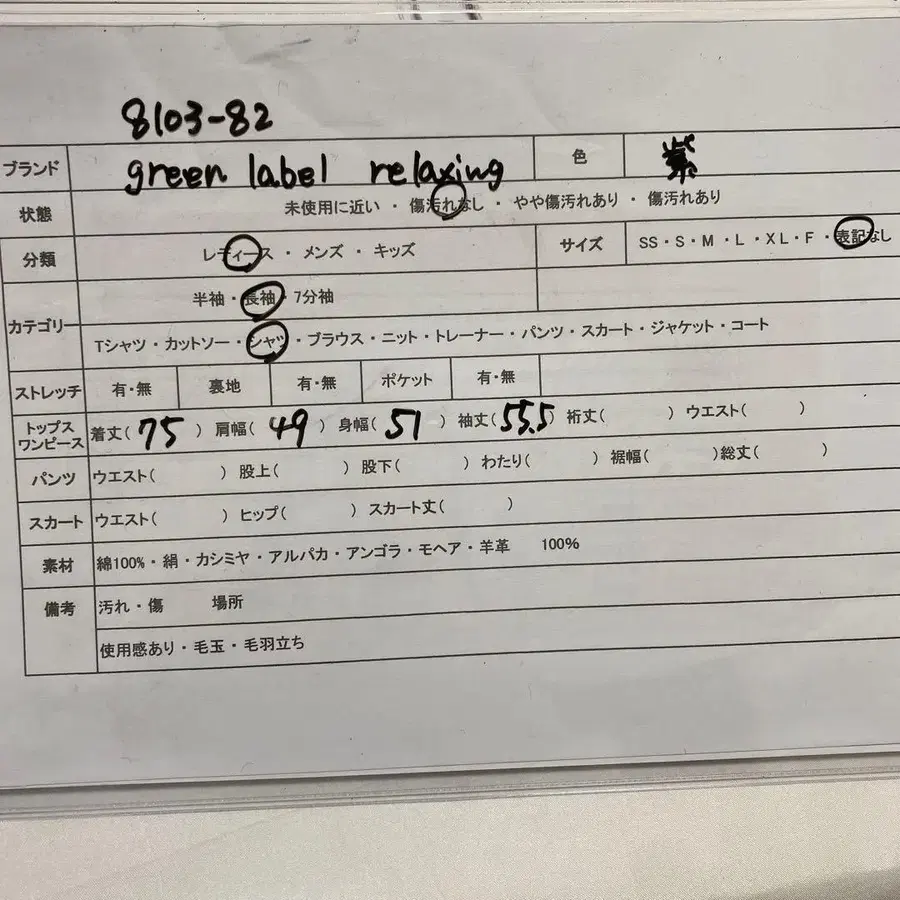 8103-82
ブランド green label relaxing 色 紫
状態 未使用に近い ・ 傷汚れなし ・ やや傷汚れあり ・ 傷汚れあり
分類 レディース ・ メンズ ・ キッズ サイズ SS・S・M・L・XL・F・表記なし
カテゴリー 半袖・長袖・7分袖
Tシャツ・カットソー・シャツ・ブラウス・ニット・トレーナー・パンツ・スカート・ジャケット・コート
ストレッチ 有・無 裏地 有・無 ポケット 有・無
トップス
ワンピース 着丈( 75 ) 肩幅( 49 ) 身幅( 51 ) 袖丈( 55.5 ) 裄丈( ) ウエスト( )
パンツ ウエスト( ) 股上( ) 股下( ) わたり( ) 裾幅( )総丈( )
スカート ウエスト( ) ヒップ( ) スカート丈( )
素材 綿100%・絹・カシミヤ・アルパカ・アンゴラ・モヘア・羊革 100%
備考 汚れ・傷 場所
使用感あり・毛玉・毛羽立ち